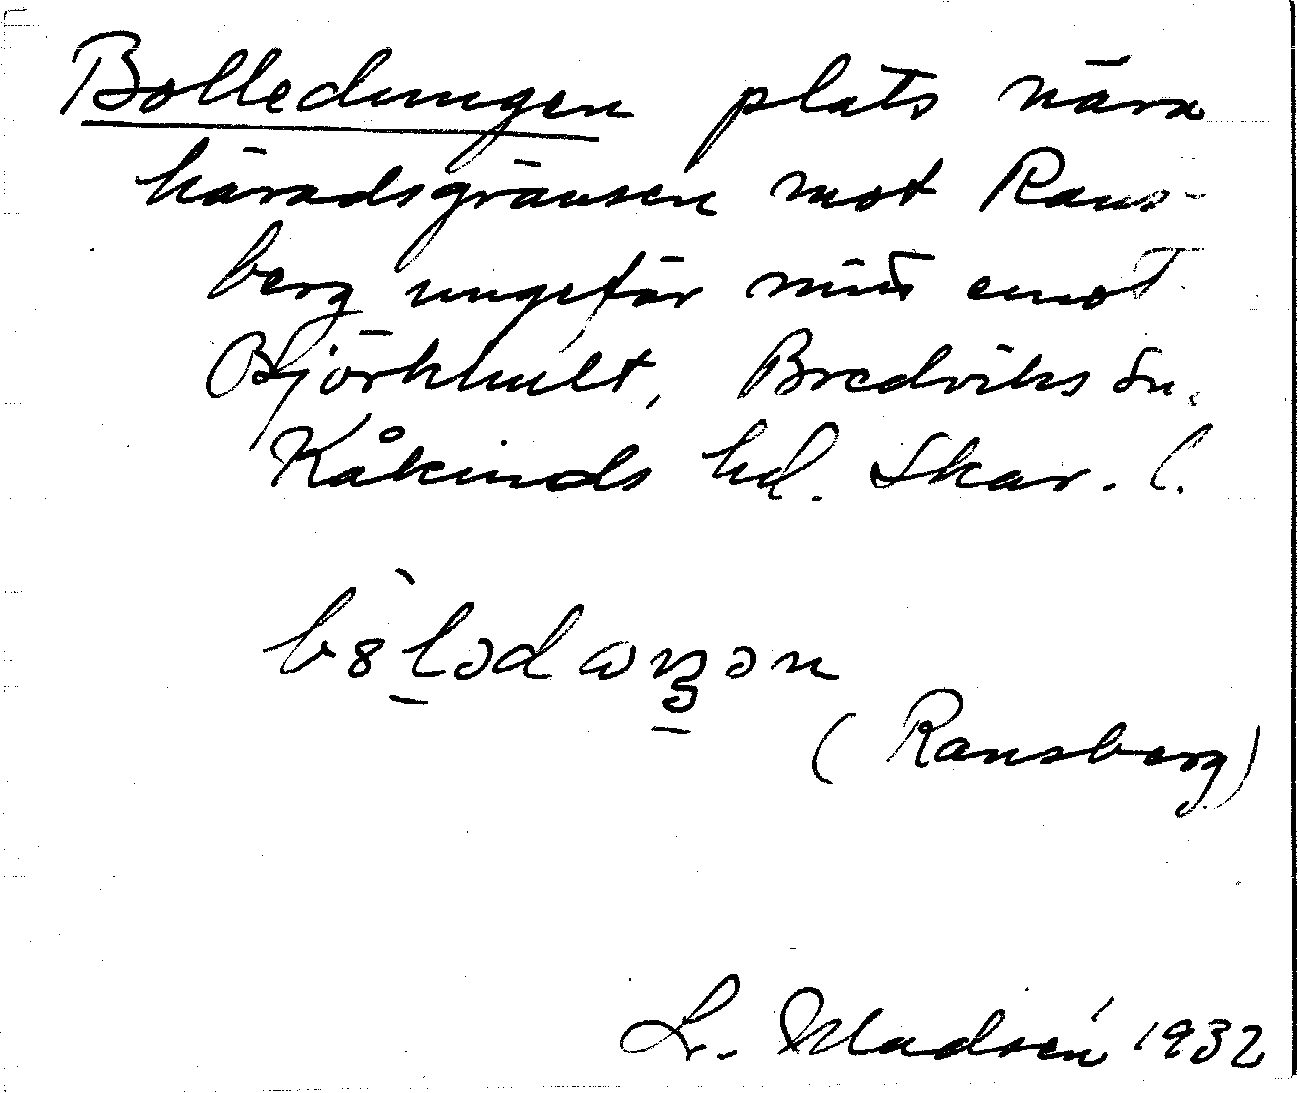 Bolledungen plats nära
häradsgränsen mot Rans-
berg ungefär mitt emot
Björkhult, Bredviks sn.
Kåkinds hd. Skar. l.
(Ransberg)
L. Madsén 1932